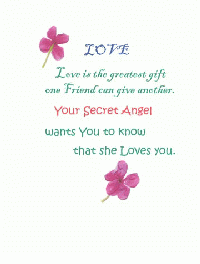 LOVE
Love is the greatest gift
one Friend can give another.
Your Secret Angel
wants You to know
that she Loves you.